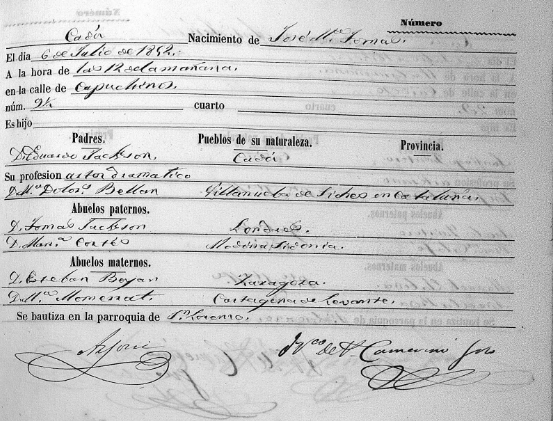 Número
Cadíz Nacimiento de José Mª Tomas.
El dia 6 de Julio de 1852.
A la hora de las 12 de la mañana.
en la calle de Capuchinos
núm. cuarto
Es hijo
Padres. Pueblos de su naturaleza. Provincia.
D. Eduardo Jackson. Cadiz
Su profesion actor dramatico
D. Mª Dolorˢ Bellan Villanueba de Sichos en Cataluña
Abuelos paternos.
D. Tomas Jackson Londres.
D. Cortés Medina Sidonia.
Abuelos maternos.
D. Esteban Zaragoza.
D. Mª Cartagena de Levante.
Se bautiza en la parroquia de Sⁿ Lorenzo.